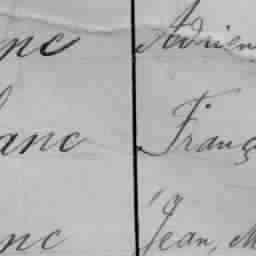 nc Adrien
anc Franç
nc Jean, M